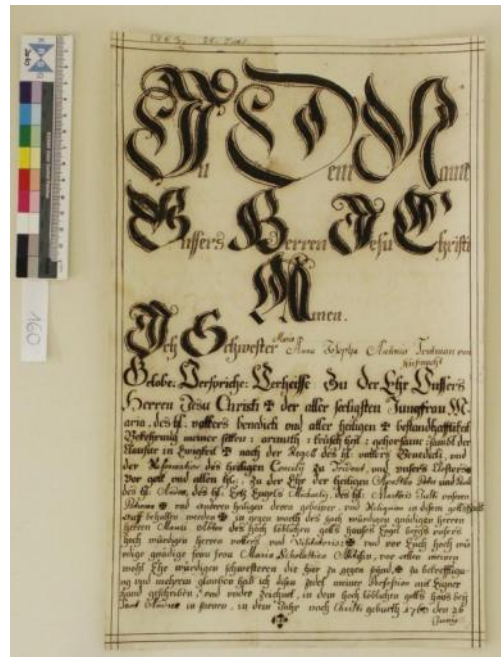 160
1763. 26. Juni
In Dem Namē
Unssers Herren Jesu Christi
Amen.
Ich Schwester Maria Anna Josepha Trutman von
Küssnacht
Gelobe: Verspriche: Verheisse Zu Der Ehr Unssers
Herren Jesu Christi ✠ der aller seeligsten Jungfrau M-
aria, des hl. vatters benedicti vnd aller heiligen ✠ bestandhafftikeit
Bekehrung meiner sitten: armuth: keuschheit: gehorsam: sambt der
Clausur in Ewigkeit ✠ nach der Regell des hl. vatters Benedicti, vnd
der Reformation des heiligen Concily Zu Trident, vnd vnsers Closters
vor gott vnd allen hl.: Zu der Ehr der heiligen Apostlen Petri und Pauli
des hl. Andree, des hl. Ertz Engels Michaelis, des hl. Martini
Patronē ✠ vnd anderen heiligen deren gebeiner, vnd Reliquien in disem gottshauss
auff behalten werden ✠ in gegen warth des hoch würdigen gnädigen herren
herren des hoch löblichen gotts hauses Engel bergs vnsers
hoch würdigen herren vatters vnd Visitatoris ✠ vnd vor Euch hoch wür
dige gnädige frau frau Maria Scholastica Äbtissin, vor allen meinen
wohl Ehr würdigen schwesteren die hier zu gegen sind, ✠ zu bekräfftigu-
ng vnd mehreren glauben hab ich disen Zedel meiner Profession mit Eigner
hand geschriben, vnd vnder Zeichnet, in dem hoch löblichen gotts haus bey
Sant Andree in sarnen, in dem Jahr nach Christi geburth 1763 den 26
Juny